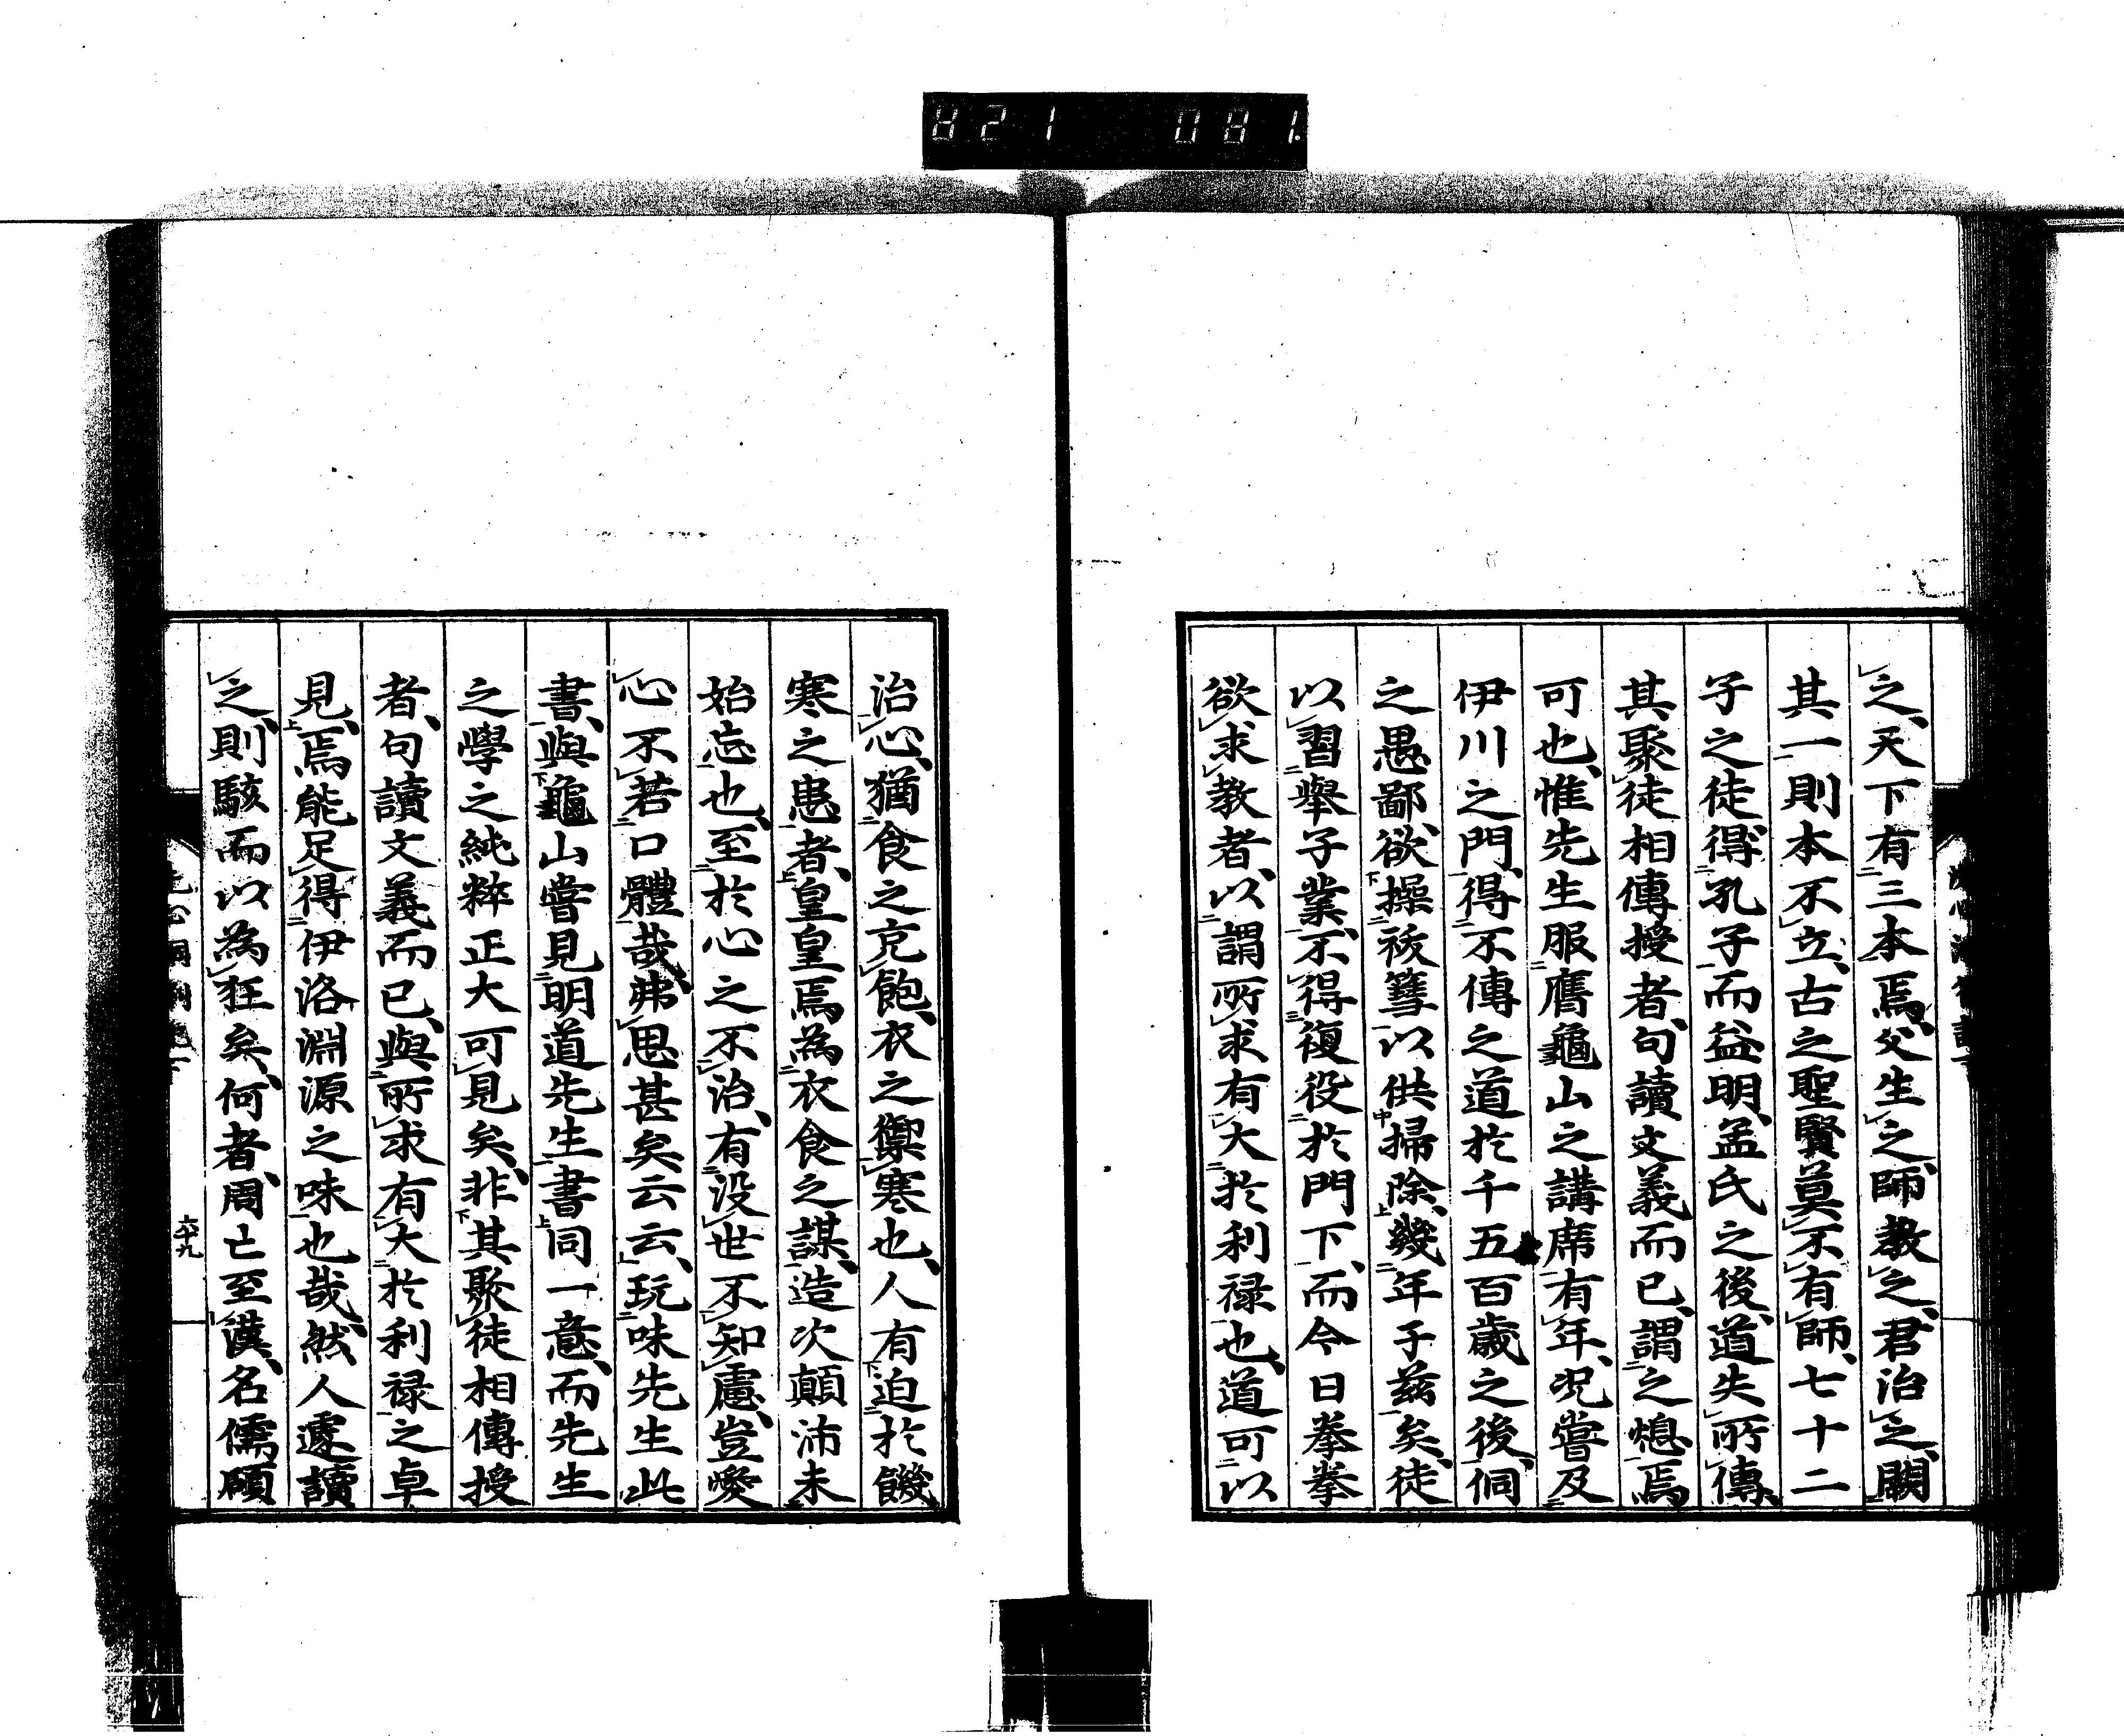 821 081
之、天下有三本焉、父生之、師教之、君治之、闕
其一則本不立、古之聖賢莫不有師、七十二
子之徒、得孔子而益明、孟氏之後、道失所傳、
其聚徒相傳授者、句讀文義而已、謂之熄焉
可也、惟先生服膺龜山之講席有年、況嘗及
伊川之門、得不傳之道於千五百歲之後、侗
之愚鄙、欲操袚篲以供掃除、幾年于茲矣、徒
以習舉子業、不得復役於門下、而今日拳拳
欲求教者、以謂所求有大於利祿也、道可以
治心、猶食之充飽、衣之禦寒也、人有迫於饑
寒之患者、皇皇焉為衣食之謀、造次顛沛未
始忘也、至於心之不治、有沒世不知慮、豈愛
心不若口體哉、弗思甚矣云云、玩味先生此
書、與龜山嘗見明道先生書同一意、而先生
之學之純粹正大可見矣、非其聚徒相傳授
者、句讀文義而已、與所求有大於利祿之卓
見、焉能足得伊洛淵源之味也哉、然人遽讀
之、則駭而以為狂矣、何者、周亡至漢、名儒碩
六十九